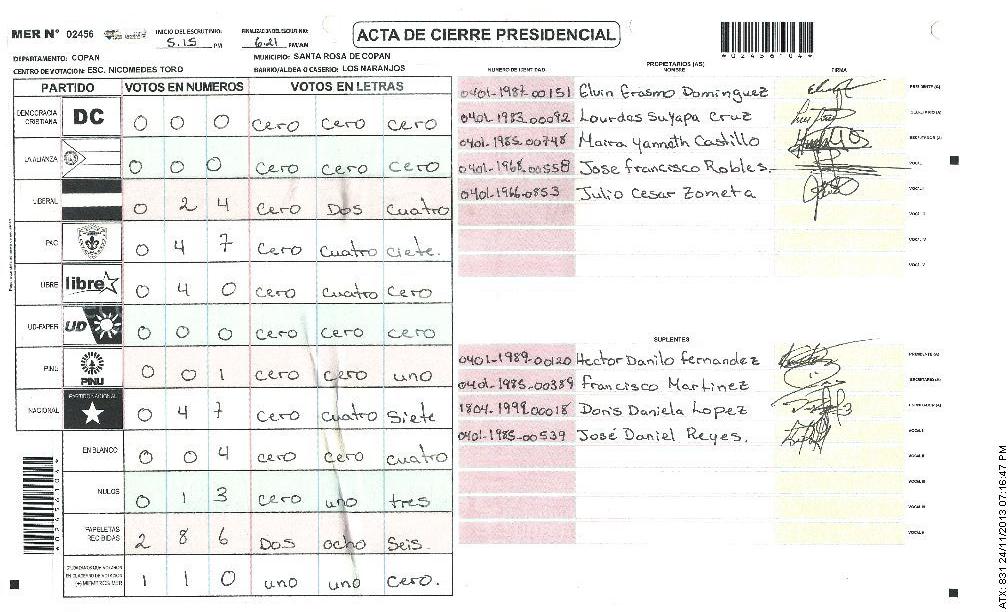 MER N° 02456
INICIO DEL ESCRUTINIO: 5.15 PM
FINALIZACION DEL ESCRUTINIO: 6.21 PM/AM
ACTA DE CIERRE PRESIDENCIAL
*02456104*
DEPARTAMENTO: COPAN
MUNICIPIO: SANTA ROSA DE COPAN
CENTRO DE VOTACION: ESC. NICOMEDES TORO
BARRIO/ALDEA O CASERIO: LOS NARANJOS
PARTIDO VOTOS EN NUMEROS VOTOS EN LETRAS
DEMOCRACIA CRISTIANA DC 0 0 0 cero cero cero
LA ALIANZA 0 0 0 cero cero cero
LIBERAL 0 2 4 cero Dos cuatro
PAC 0 4 7 cero cuatro ciete.
LIBRE libre 0 4 0 cero cuatro cero
UD-FAPER UD 0 0 0 cero cero cero
PINU PINU 0 0 1 cero cero uno
NACIONAL PARTIDO NACIONAL 0 4 7 cero cuatro siete
EN BLANCO 0 0 4 cero cero cuatro
NULOS 0 1 3 cero uno tres
PAPELETAS RECIBIDAS 2 8 6 Dos ocho seis.
CIUDADANOS QUE VOTARON EN CUADERNO DE VOTACION (+) MIEMBROS MER 1 1 0 uno uno cero.
PROPIETARIOS (AS)
NUMERO DE IDENTIDAD NOMBRE FIRMA
0401-1987-00151 Elvin Erasmo Dominguez PRESIDENTE (A)
0401-1983-00092 Lourdes Suyapa Cruz SECRETARIO (A)
0401-1985-00748 Maira Yanneth Castillo ESCRUTADOR (A)
0401-1968-00558 Jose Francisco Robles. VOCAL I
0401-1966-0853 Julio Cesar Zometa VOCAL II
VOCAL III
VOCAL IV
VOCAL V
SUPLENTES
0401-1989-00120 Hector Danilo Fernandez PRESIDENTE (A)
0401-1985-00339 Francisco Martinez SECRETARIO (A)
1804-1992 00018 Doris Daniela Lopez ESCRUTADOR (A)
0401-1985-00539 José Daniel Reyes. VOCAL I
VOCAL II
VOCAL III
VOCAL IV
VOCAL V
ATX: 831 24/11/2013 07:16:47 PM